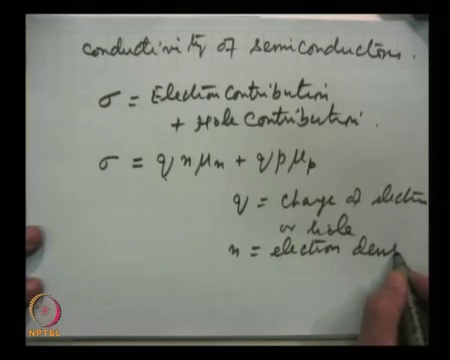 conductivity of semiconductors.
σ = Electron contribution
+ Hole contribution.
σ = q n μn + q p μp
q = charge of electron
or hole
n = electron dens
NPTEL